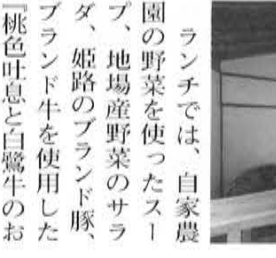 ランチでは、自家農
園の野菜を使ったスー
プ、地場産野菜のサラ
ダ、姫路のブランド豚、
ブランド牛を使用した
『桃色吐息と白鷺牛のお